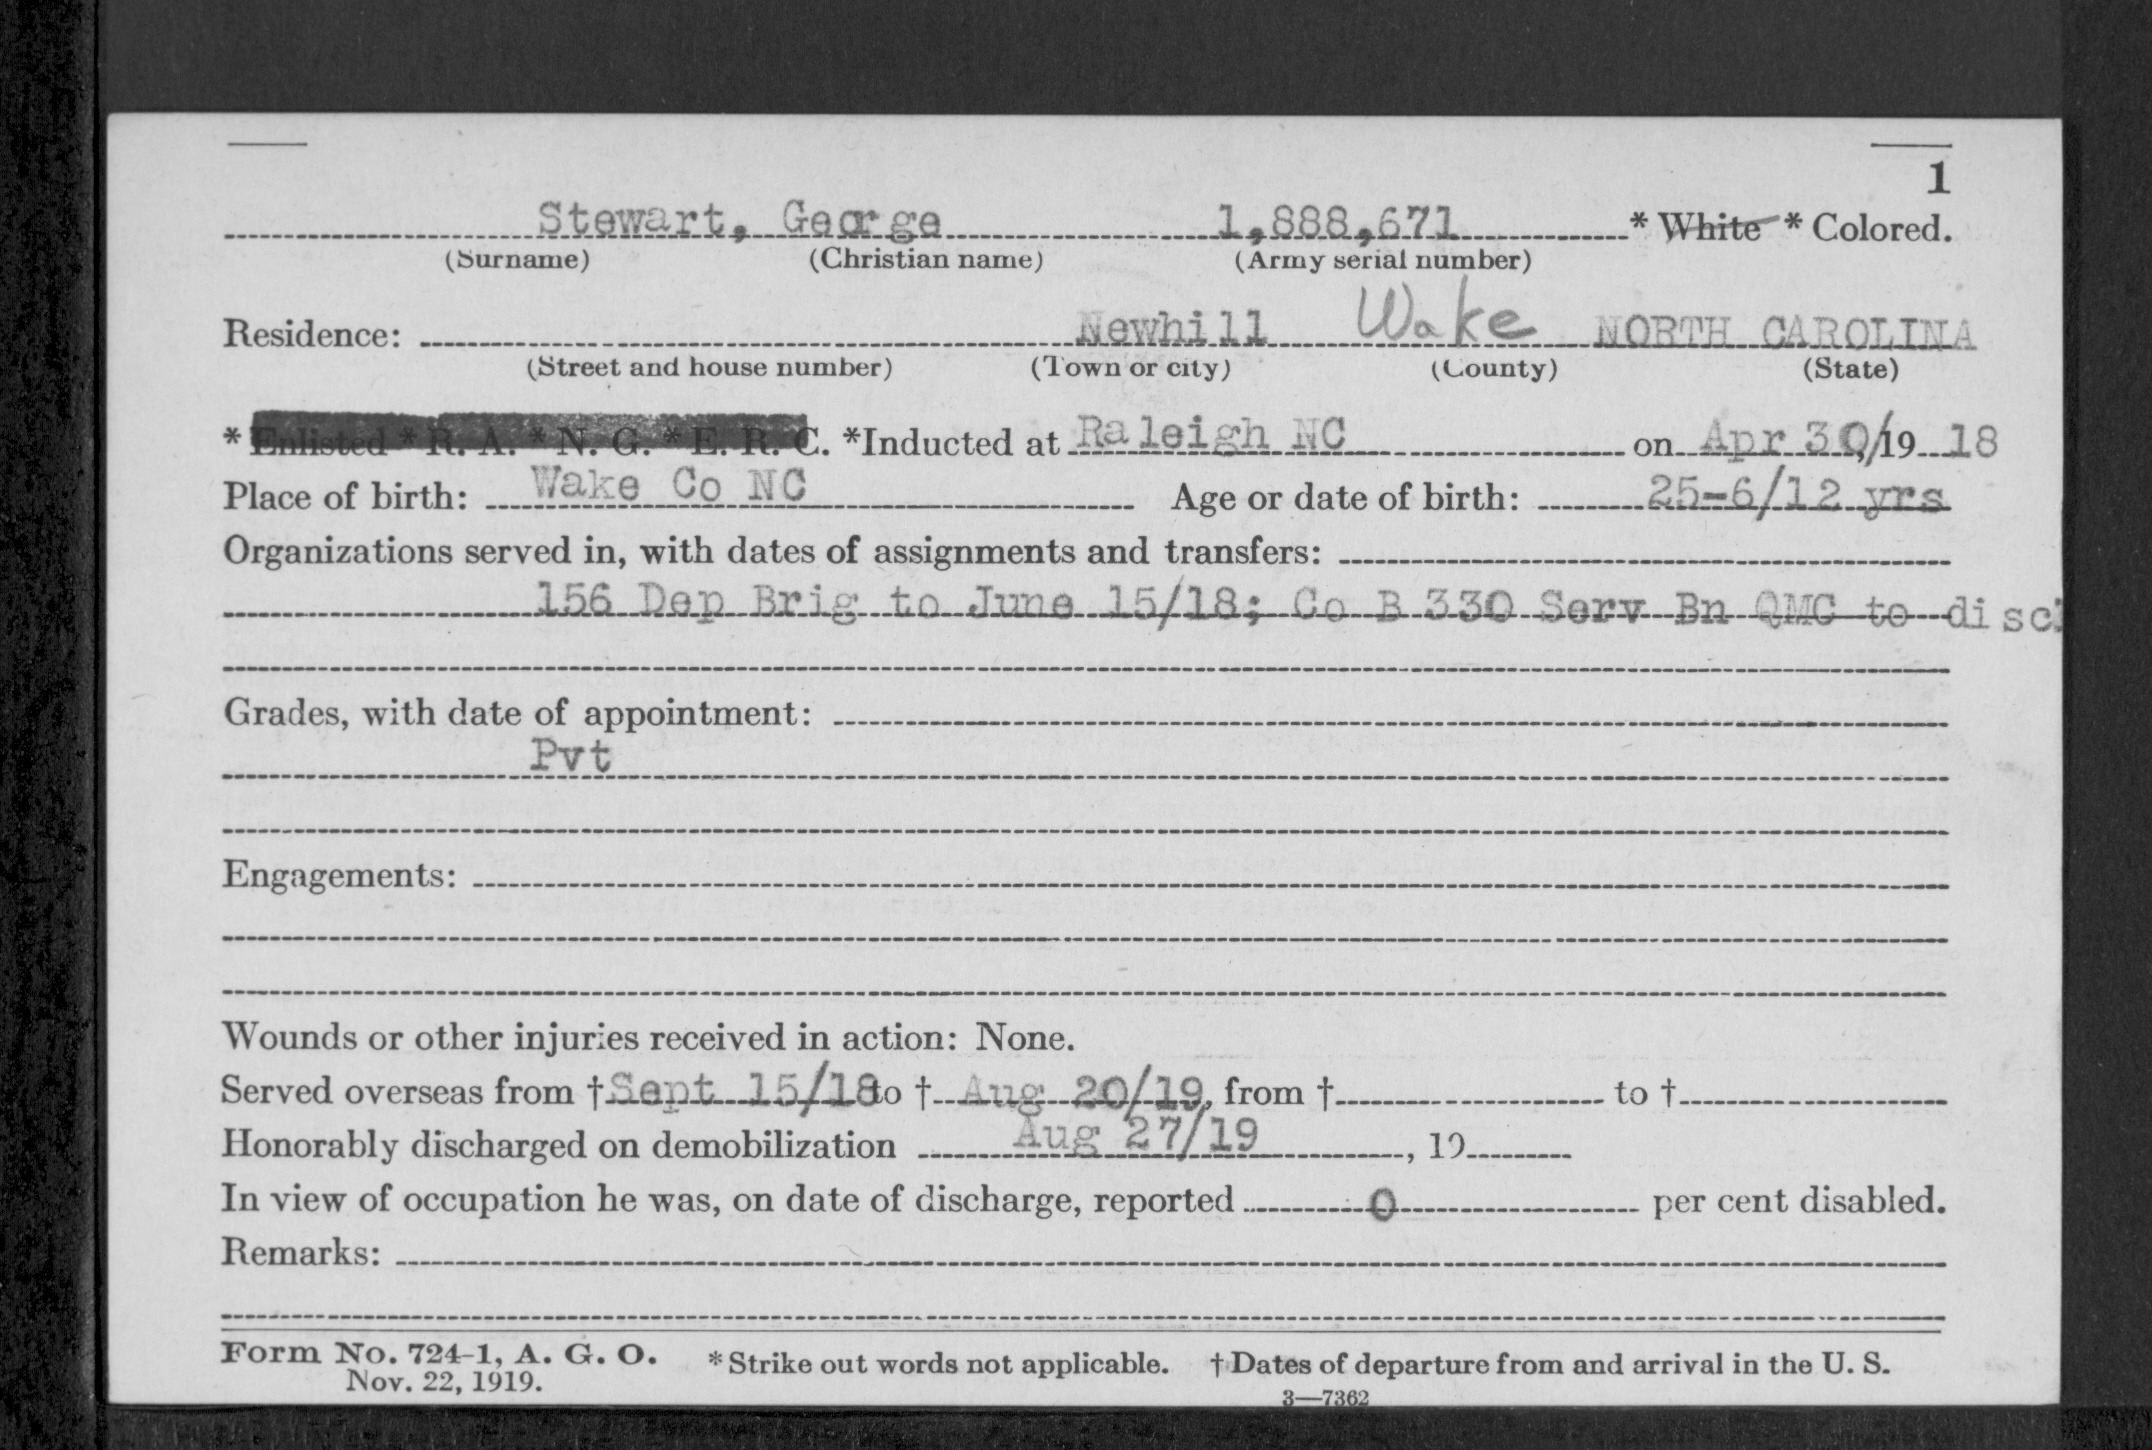 1
Stewart, George 1,888,671 * White * Colored.
(Surname) (Christian name) (Army serial number)
Residence: Newhill Wake NORTH CAROLINA
(Street and house number) (Town or city) (County) (State)
* Enlisted * R. A. * N. G. * E. R. C. *Inducted at Raleigh NC on Apr 30/19 18
Place of birth: Wake Co NC Age or date of birth: 25-6/12 yrs
Organizations served in, with dates of assignments and transfers:
156 Dep Brig to June 15/18; Co B 330 Serv Bn QMC to disc
Grades, with date of appointment:
Pvt
Engagements:
Wounds or other injuries received in action: None.
Served overseas from † Sept 15/18 to † Aug 20/19, from † to †
Honorably discharged on demobilization Aug 27/19, 19
In view of occupation he was, on date of discharge, reported 0 per cent disabled.
Remarks:
Form No. 724-1, A. G. O. * Strike out words not applicable. † Dates of departure from and arrival in the U. S.
Nov. 22, 1919.
3—7362